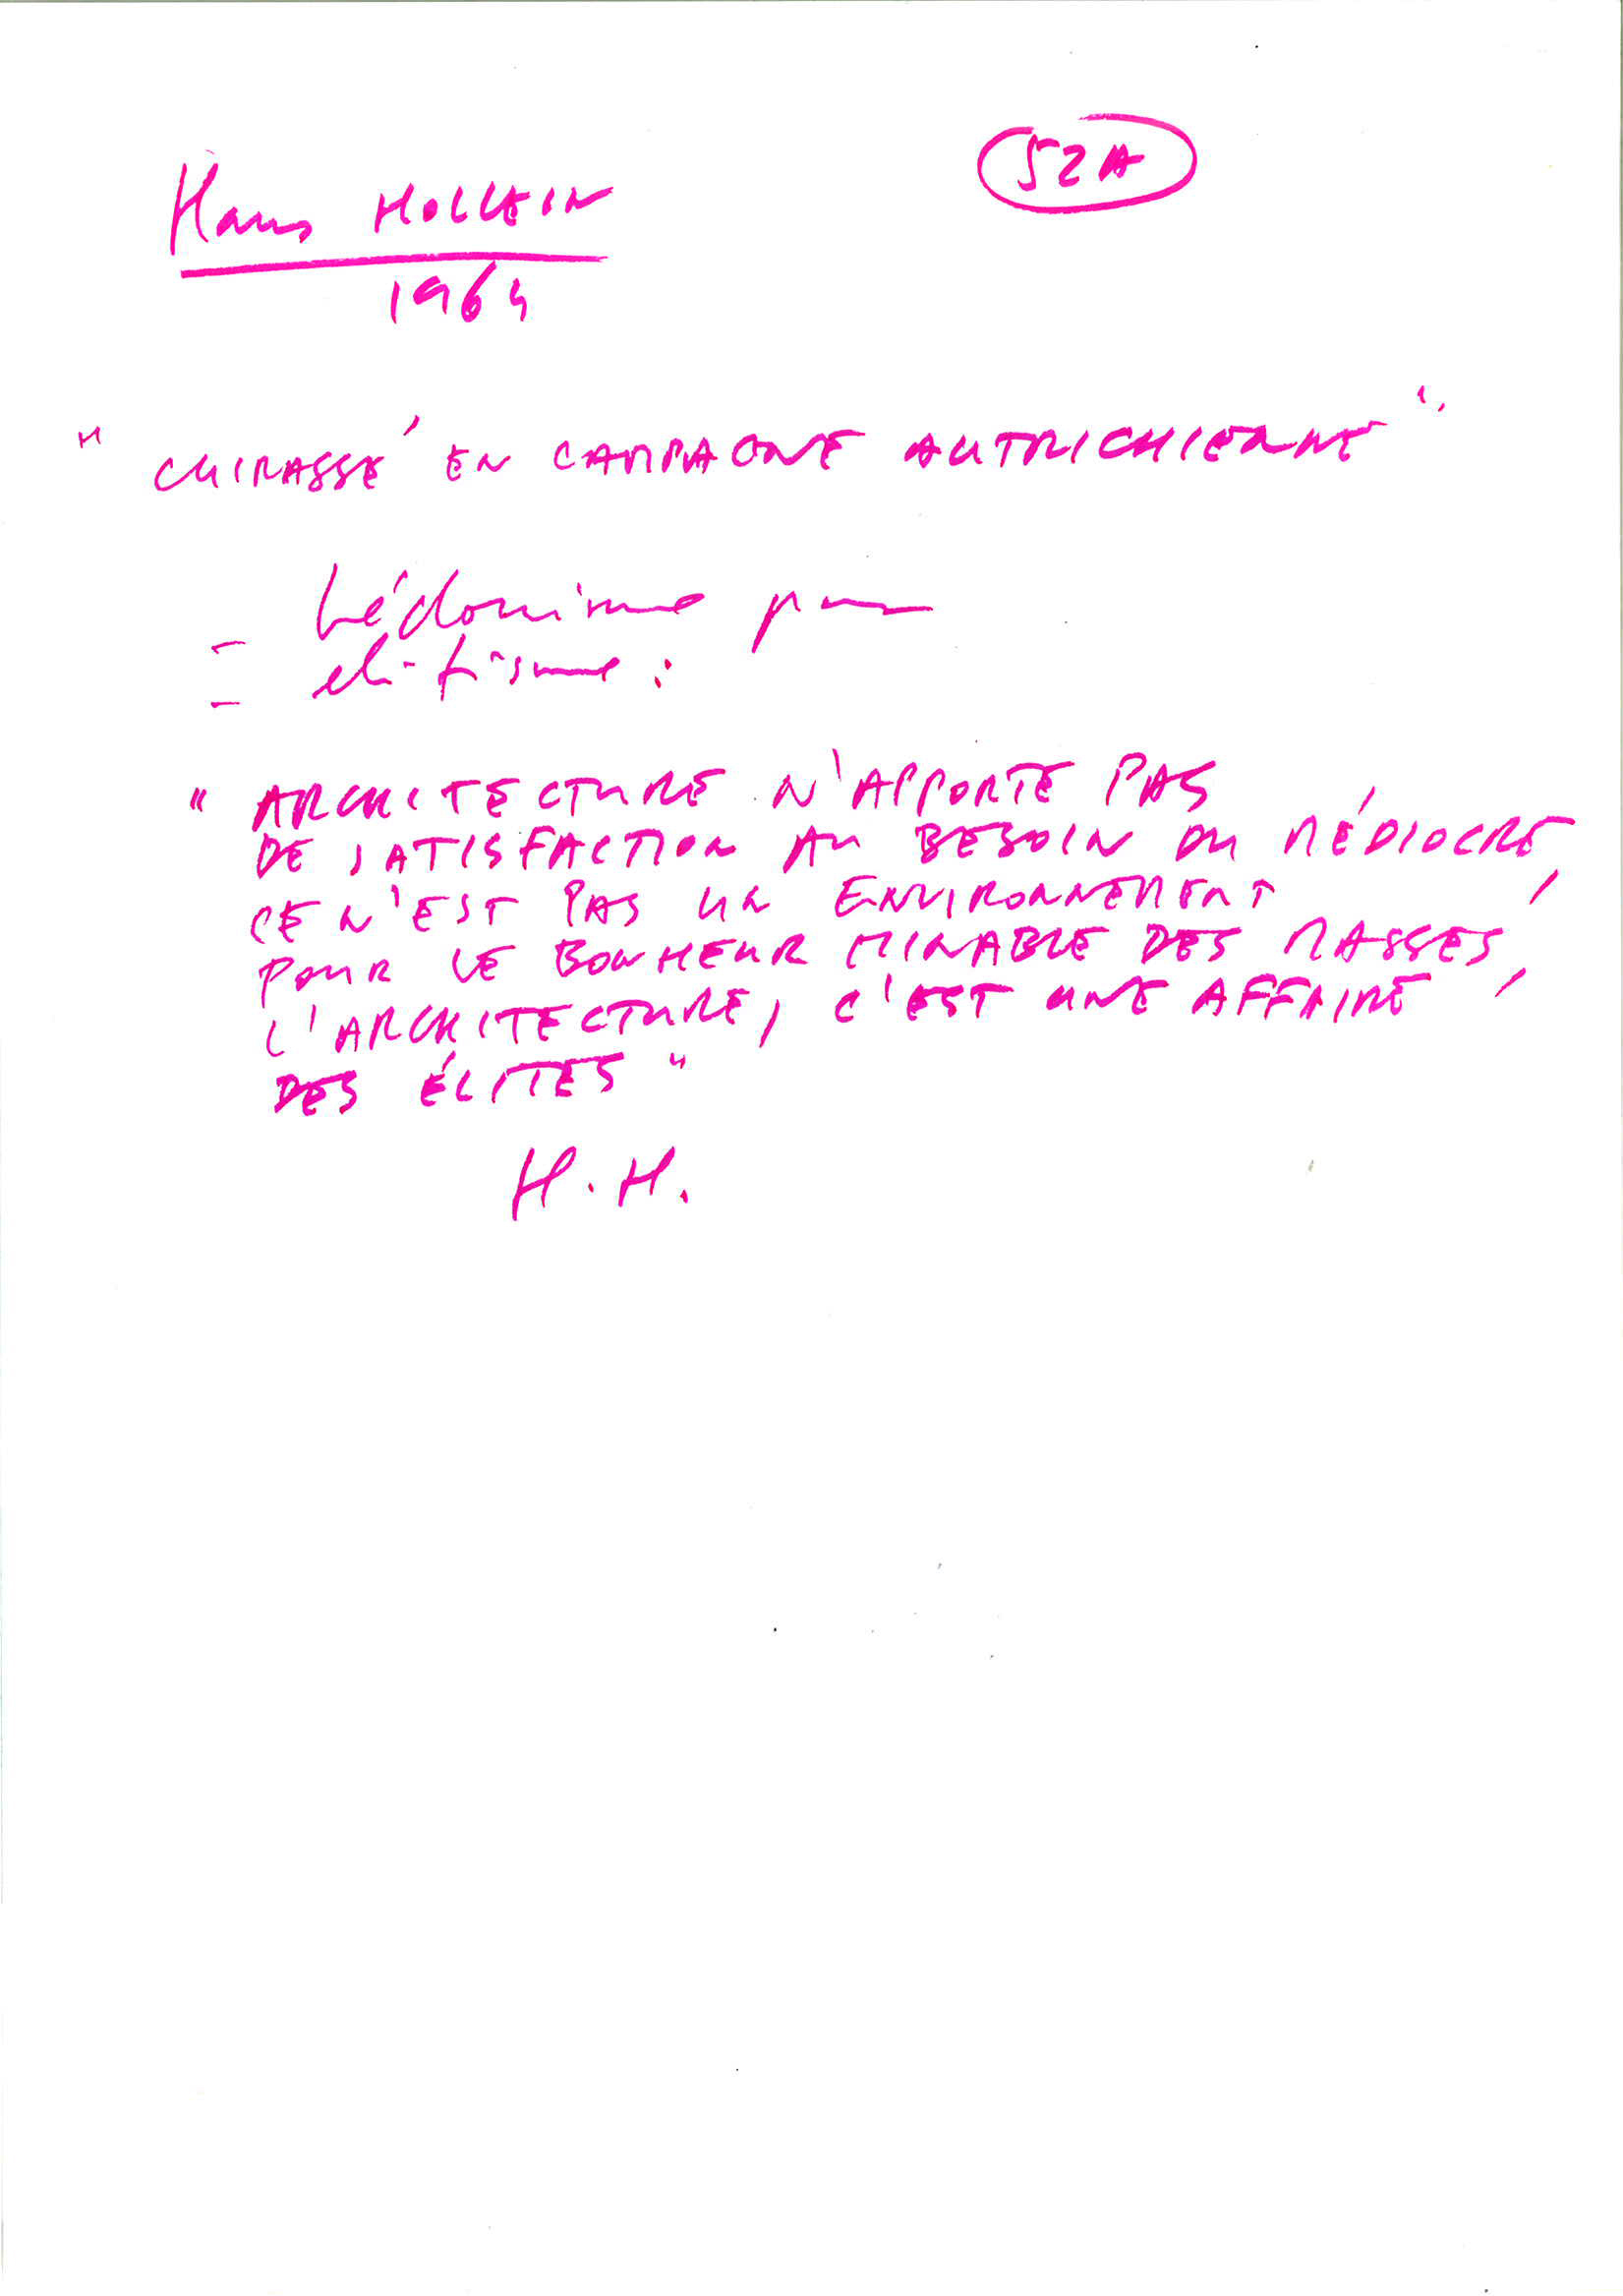 52A
Hans HOLLEIN
1964
" CUIRASSÉ EN CAMPAGNE AUTRICHIENNE "
- hédonisme pur
- élitisme :
" ARCHITECTURE N'APPORTE PAS
DE SATISFACTION AU BESOIN DU MÉDIOCRE,
CE N'EST PAS UN ENVIRONNEMENT
POUR LE BONHEUR MINABLE DES MASSES,
L'ARCHITECTURE, C'EST UNE AFFAIRE
DES ÉLITES "
H.H.